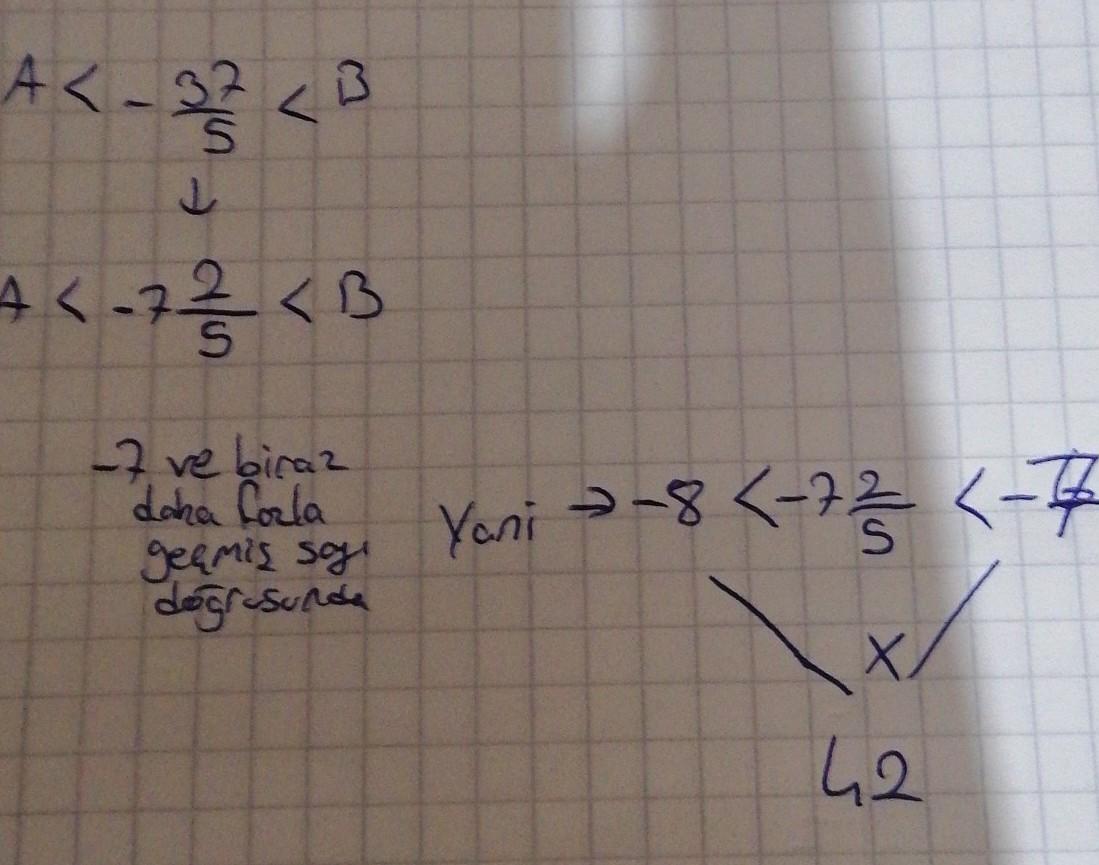 A < - 37/5 < B
↓
A < -7 2/5 < B
-7 ve biraz
daha fazla
geçmiş sayı
doğrusunda
Yani → -8 < -7 2/5 < -7
x
42